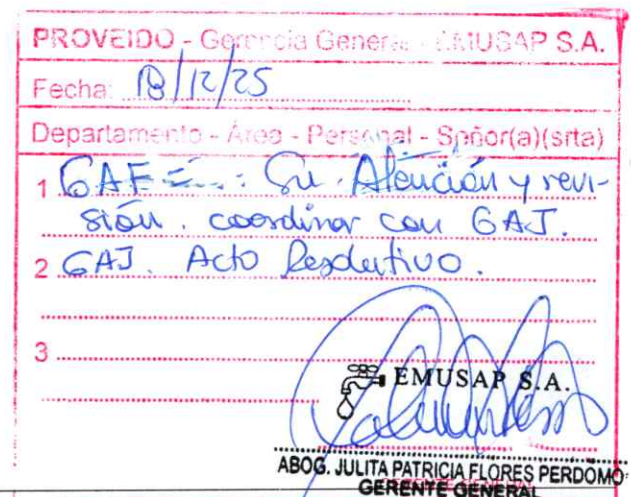 PROVEIDO - Gerencia General - EMUSAP S.A.
Fecha: 18/12/25
Departamento - Área - Personal - Señor(a)(srta)
1 GAF : Su Atención y revi-
sión. coordinar con GAJ.
2 GAJ. Acto Resolutivo.
3
EMUSAP S.A.
ABOG. JULITA PATRICIA FLORES PERDOMO
GERENTE GENERAL